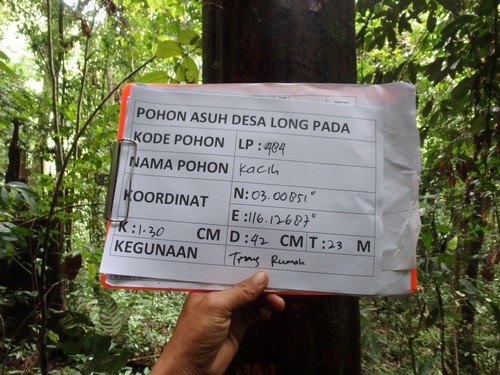 POHON ASUH DESA LONG PADA
KODE POHON LP : 484
NAMA POHON Kacih
KOORDINAT N: 03.00851°
E : 116.12687°
K : 1.30 CM D : 42 CM T : 23 M
KEGUNAAN Tiang Rumah